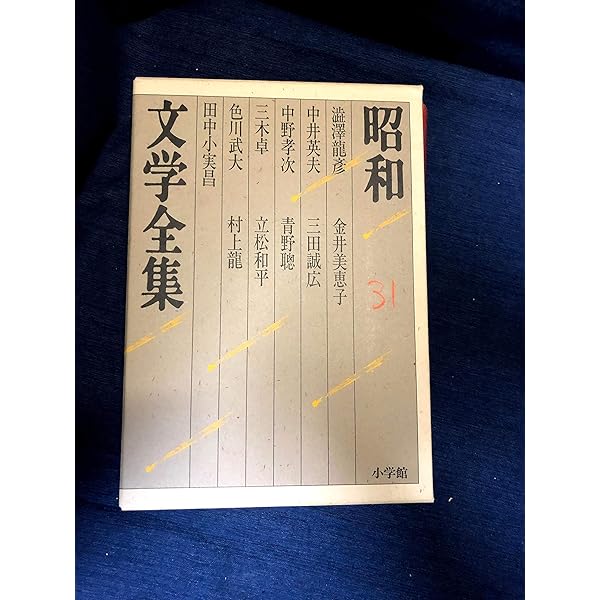 昭和
31
澁澤龍彥 金井美恵子
中井英夫 三田誠広
中野孝次 青野聰
三木卓 立松和平
色川武大 村上龍
田中小実昌
文学全集
小学館